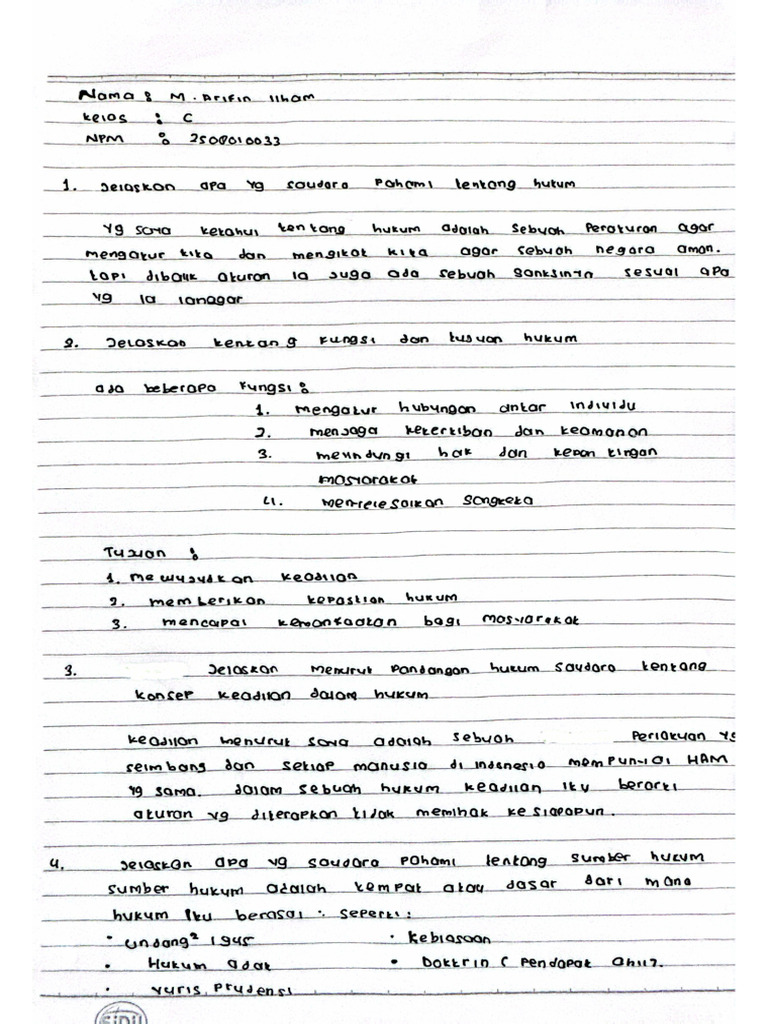 Nama : M. Arifin Ilham
Kelas : C
NPM : 2500010033
1. Jelaskan apa yg saudara Pahami tentang hukum
Yg saya ketahui tentang hukum adalah sebuah Peraturan agar
mengatur kita dan mengikat kita agar sebuah negara aman.
tapi dibalik aturan ia juga ada sebuah sanksinya sesuai apa
yg ia langgar
2. Jelaskan tentang fungsi dan tujuan hukum
ada beberapa fungsi :
1. mengatur hubungan antar individu
2. menjaga ketertiban dan keamanan
3. melindungi hak dan kepentingan
masyarakat
4. menyelesaikan sengketa
Tujuan :
1. mewujudkan keadilan
2. memberikan kepastian hukum
3. mencapai kemanfaatan bagi masyarakat
3. Jelaskan menurut Pandangan hukum saudara tentang
konsep keadilan dalam hukum
keadilan menurut saya adalah sebuah Perlakuan yg
seimbang dan setiap manusia di indonesia mempunyai HAM
yg sama. dalam sebuah hukum keadilan itu berarti
aturan yg diterapkan tidak memihak ke siapapun.
4. Jelaskan apa yg saudara Pahami tentang sumber hukum
sumber hukum adalah tempat atau dasar dari mana
hukum itu berasal : seperti :
• undang² 1945 • kebiasaan
• Hukum adat • Doktrin ( Pendapat ahli ).
• Yuris Prudensi
SIDU